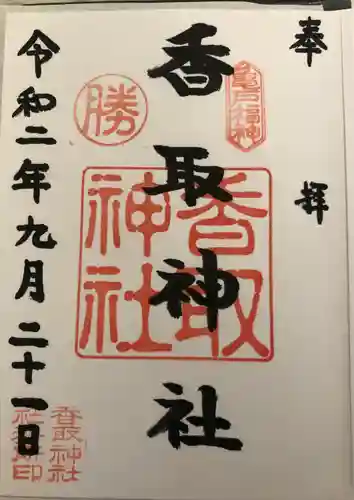 奉拝
亀戸福神
香取神社
香取神社
勝
令和二年九月二十一日
香取神社
社務所印